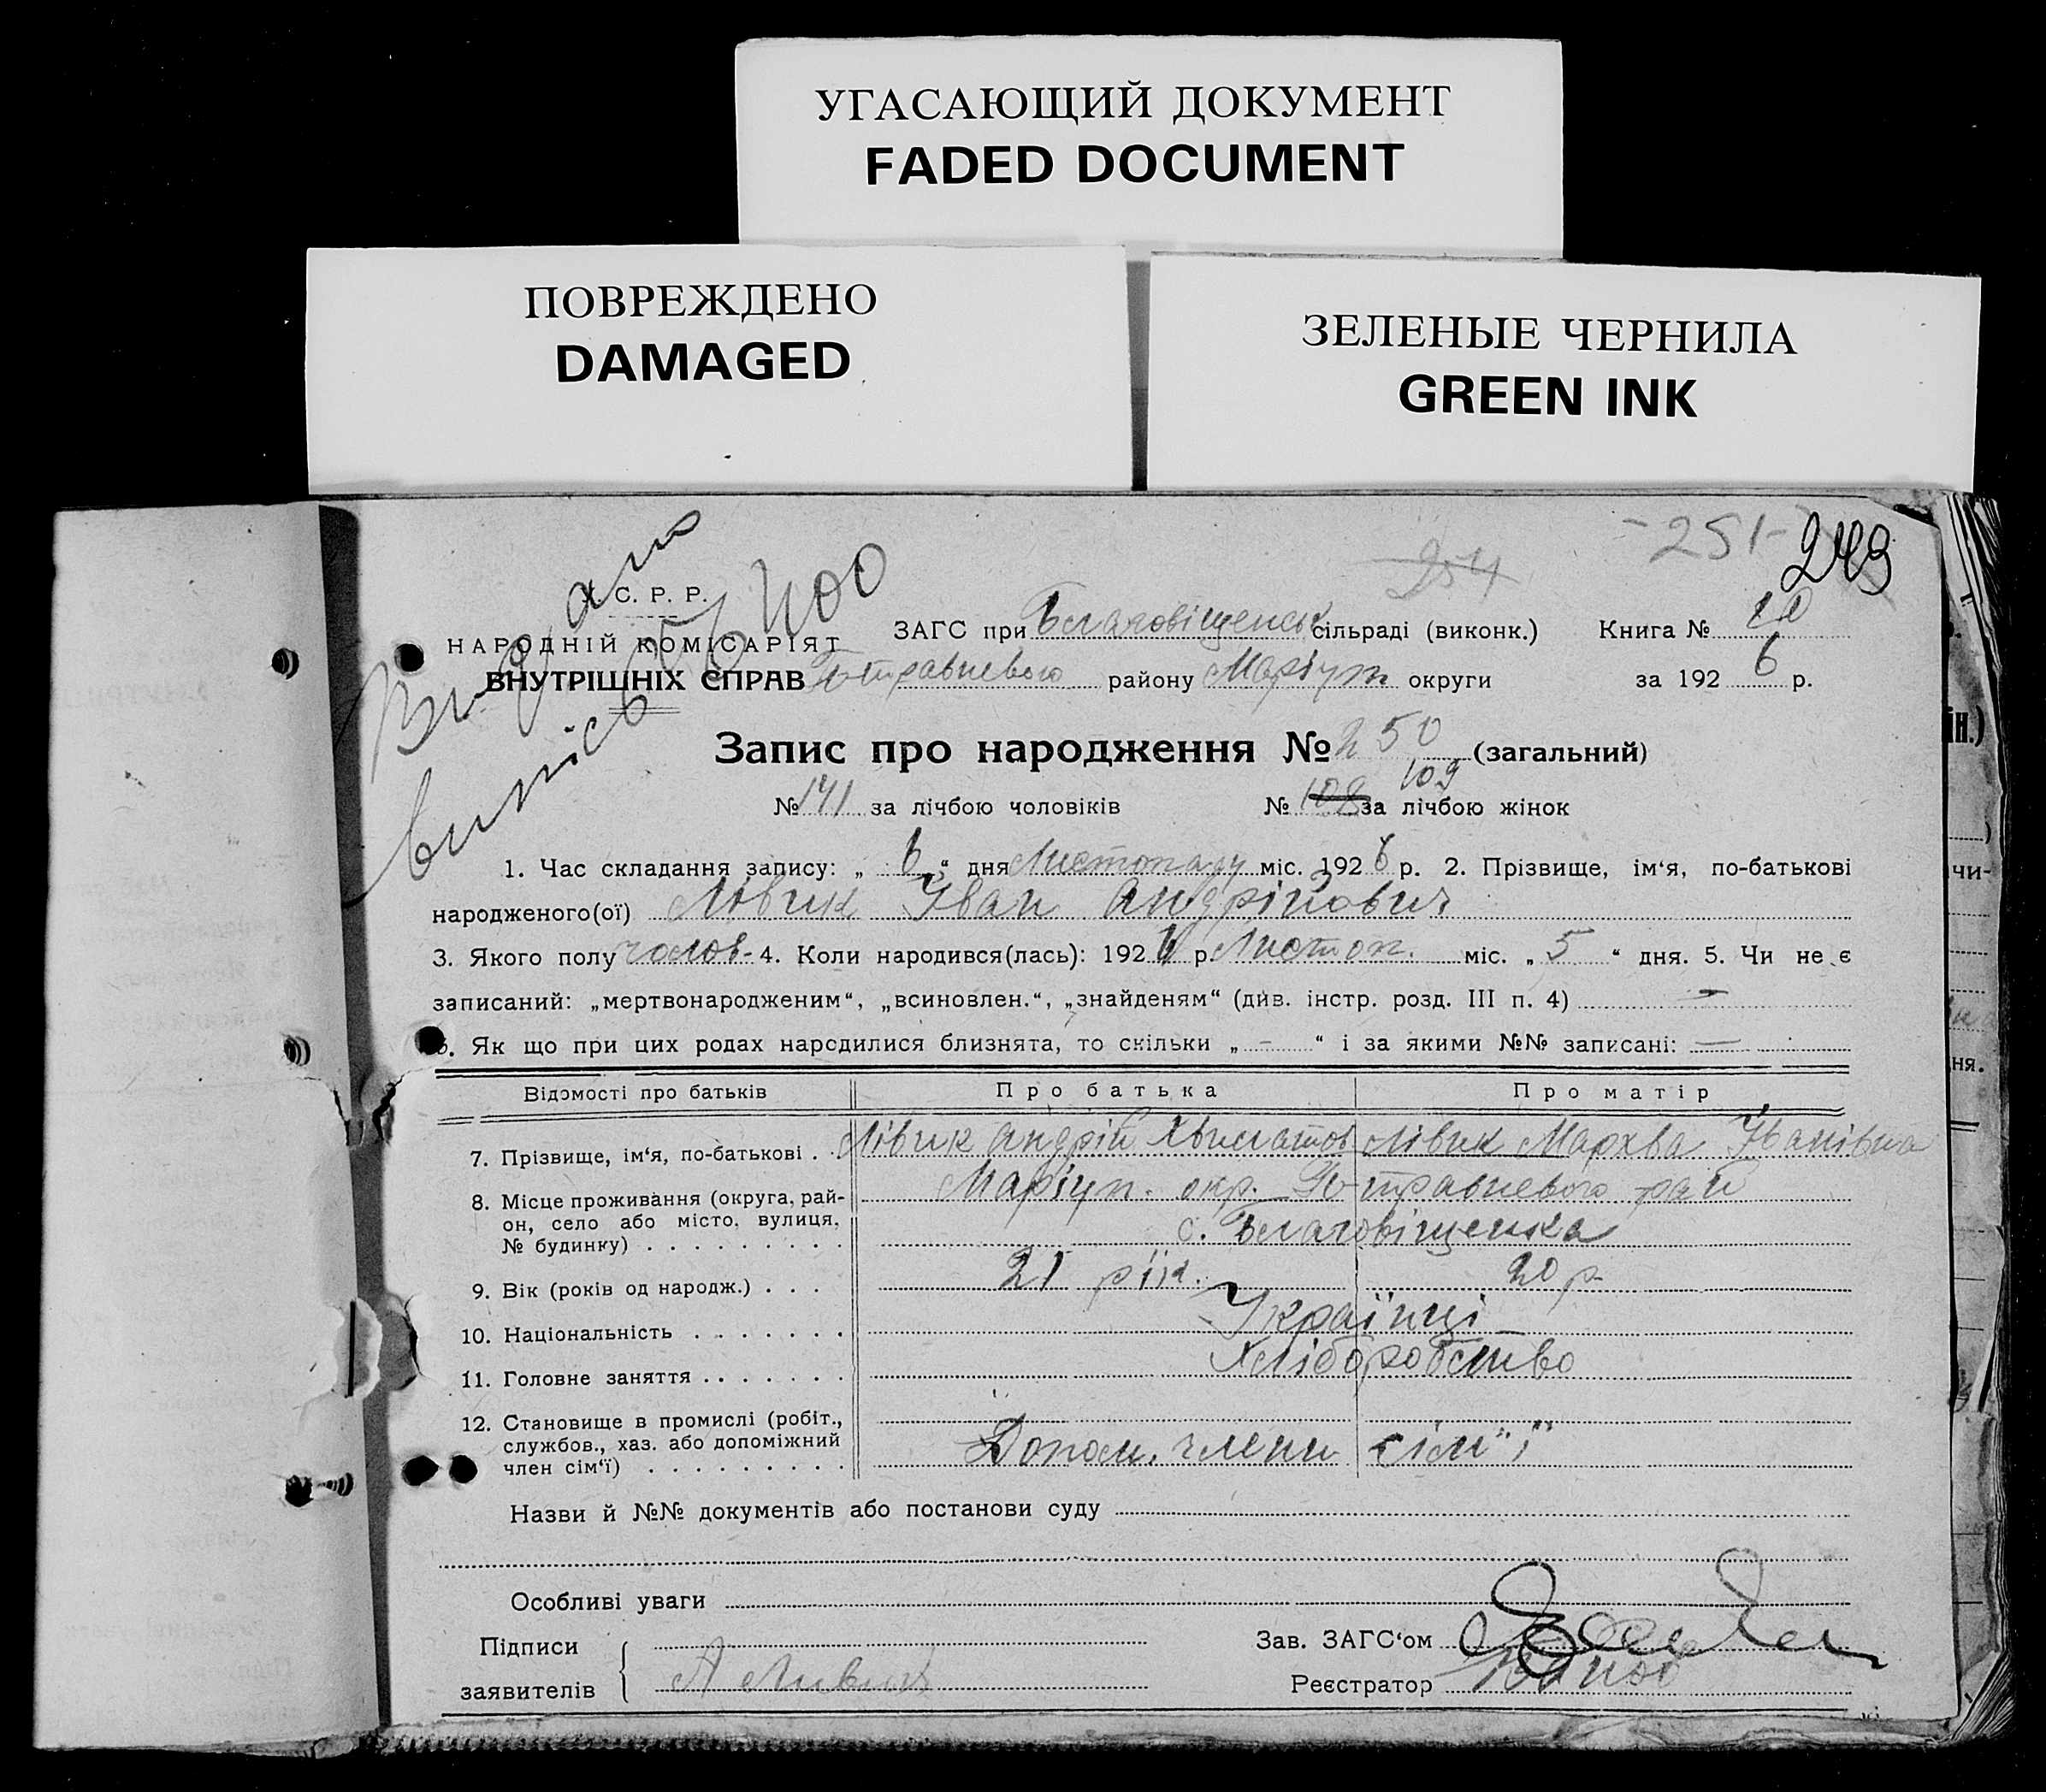 УГАСАЮЩИЙ ДОКУМЕНТ
FADED DOCUMENT
ПОВРЕЖДЕНО
DAMAGED
ЗЕЛЕНЫЕ ЧЕРНИЛА
GREEN INK
-251-
254
249
Видана
випись 400
У. С. Р. Р.
НАРОДНІЙ КОМІСАРІЯТ
ВНУТРІШНІХ СПРАВ
ЗАГС при Благовіщенськ сільраді (виконк.) Книга № 10
травневого району Маріуп округи за 1926 р.
Запис про народження № 250 (загальний)
№ 141 за лічбою чоловіків № 108 109 за лічбою жінок
1. Час складання запису: „ 6 “ дня Листопаду міс. 1926 р. 2. Прізвище, ім‘я, по-батькові
народженого(ої) Лівик Іван Андрійович
3. Якого полу чолов- 4. Коли народився(лась): 1926 р. Листоп. міс. „ 5 “ дня. 5. Чи не є
записаний: „мертвонародженим“, „всиновлен.“, „знайденям“ (див. інстр. розд. III п. 4) -
6. Як що при цих родах народилися близнята, то скільки „ - “ і за якими №№ записані: —
Відомості про батьків Про батька Про матір
7. Прізвище, ім‘я, по-батькові . Лівик Андрій Лівик Мархва Іванівна
8. Місце проживання (округа, рай- Маріуп. окр. травневого рай
он, село або місто, вулиця, с. Благовіщенка
№ будинку) . . . . . . . . .
9. Вік (років од народж.) . . . 21 рік. 20 р.
10. Національність . . . . . . . Українці
11. Головне заняття . . . . . . . Хліборобство
12. Становище в промислі (робіт.,
службов., хаз. або допоміжний Допом. члени сім"ї
член сім‘ї) . . . . . . . . .
Назви й №№ документів або постанови суду
Особливі уваги
Підписи
заявителів А Ливик
Зав. ЗАГС‘ом
Реєстратор